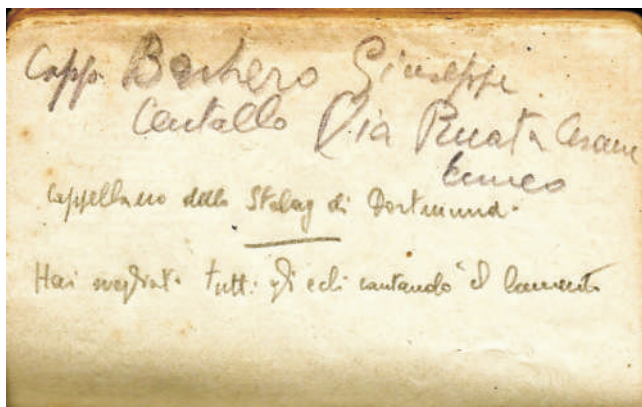 Capp. Barbero Giuseppe
Centallo Via Busata Cesare
Cuneo
Cappellano dello Stalag di Dortmund.
Hai svegliato tutti gli echi cantando "il lamento